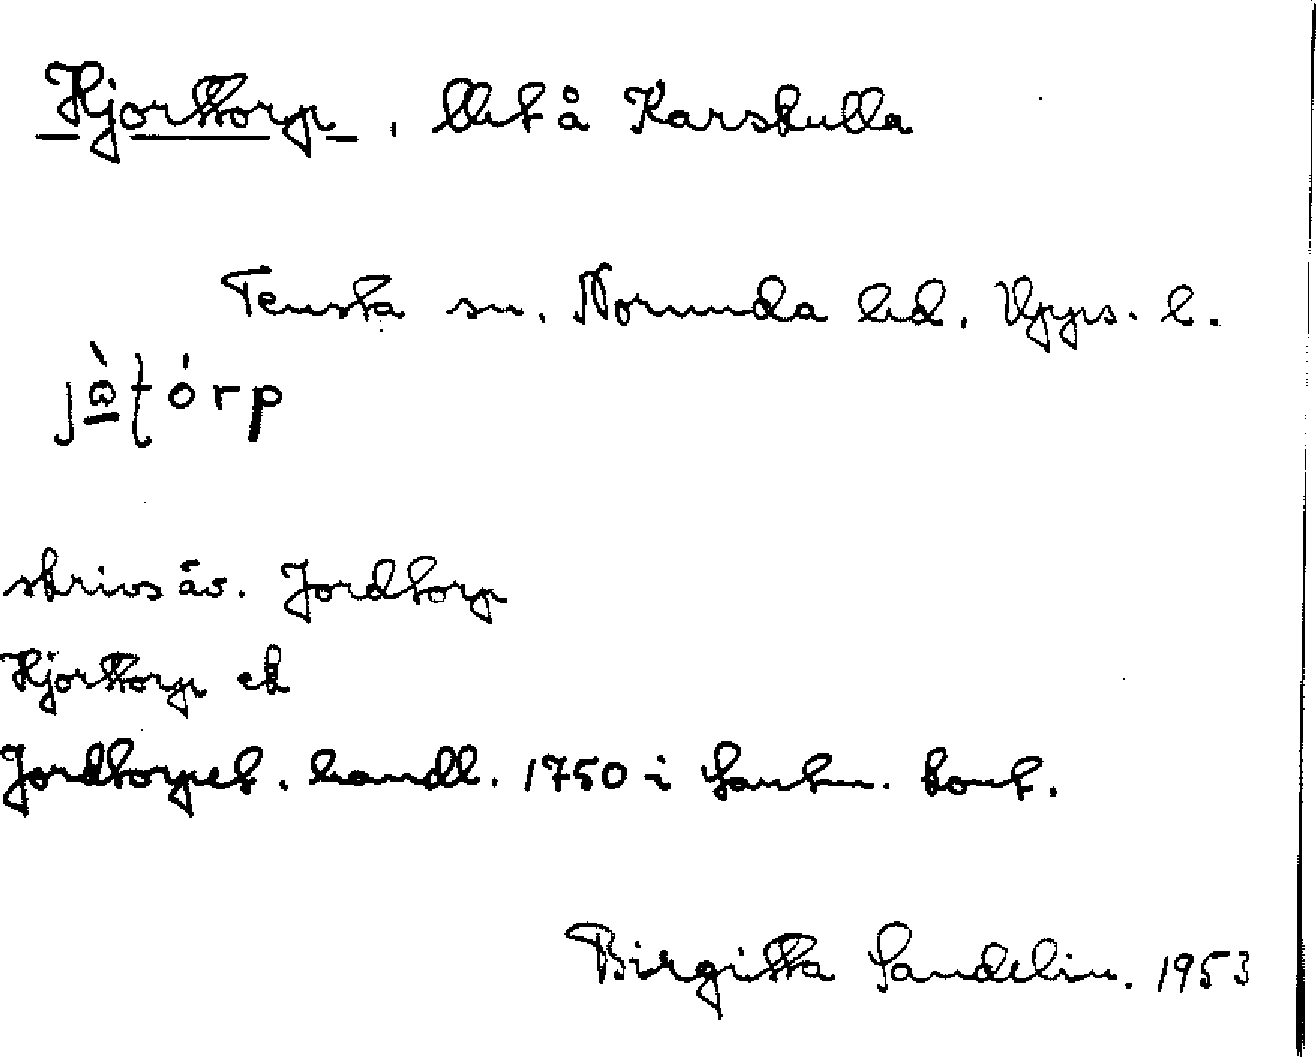 Hjorttorp, lht å Karskulla
Tensta sn. Norunda hd. Upps. l.
skrivs äv. Jordtorp
Hjorttorp ek
Jordtorpet. handl. 1750 i Lantm. kont.
Birgitta Sandelin. 1953